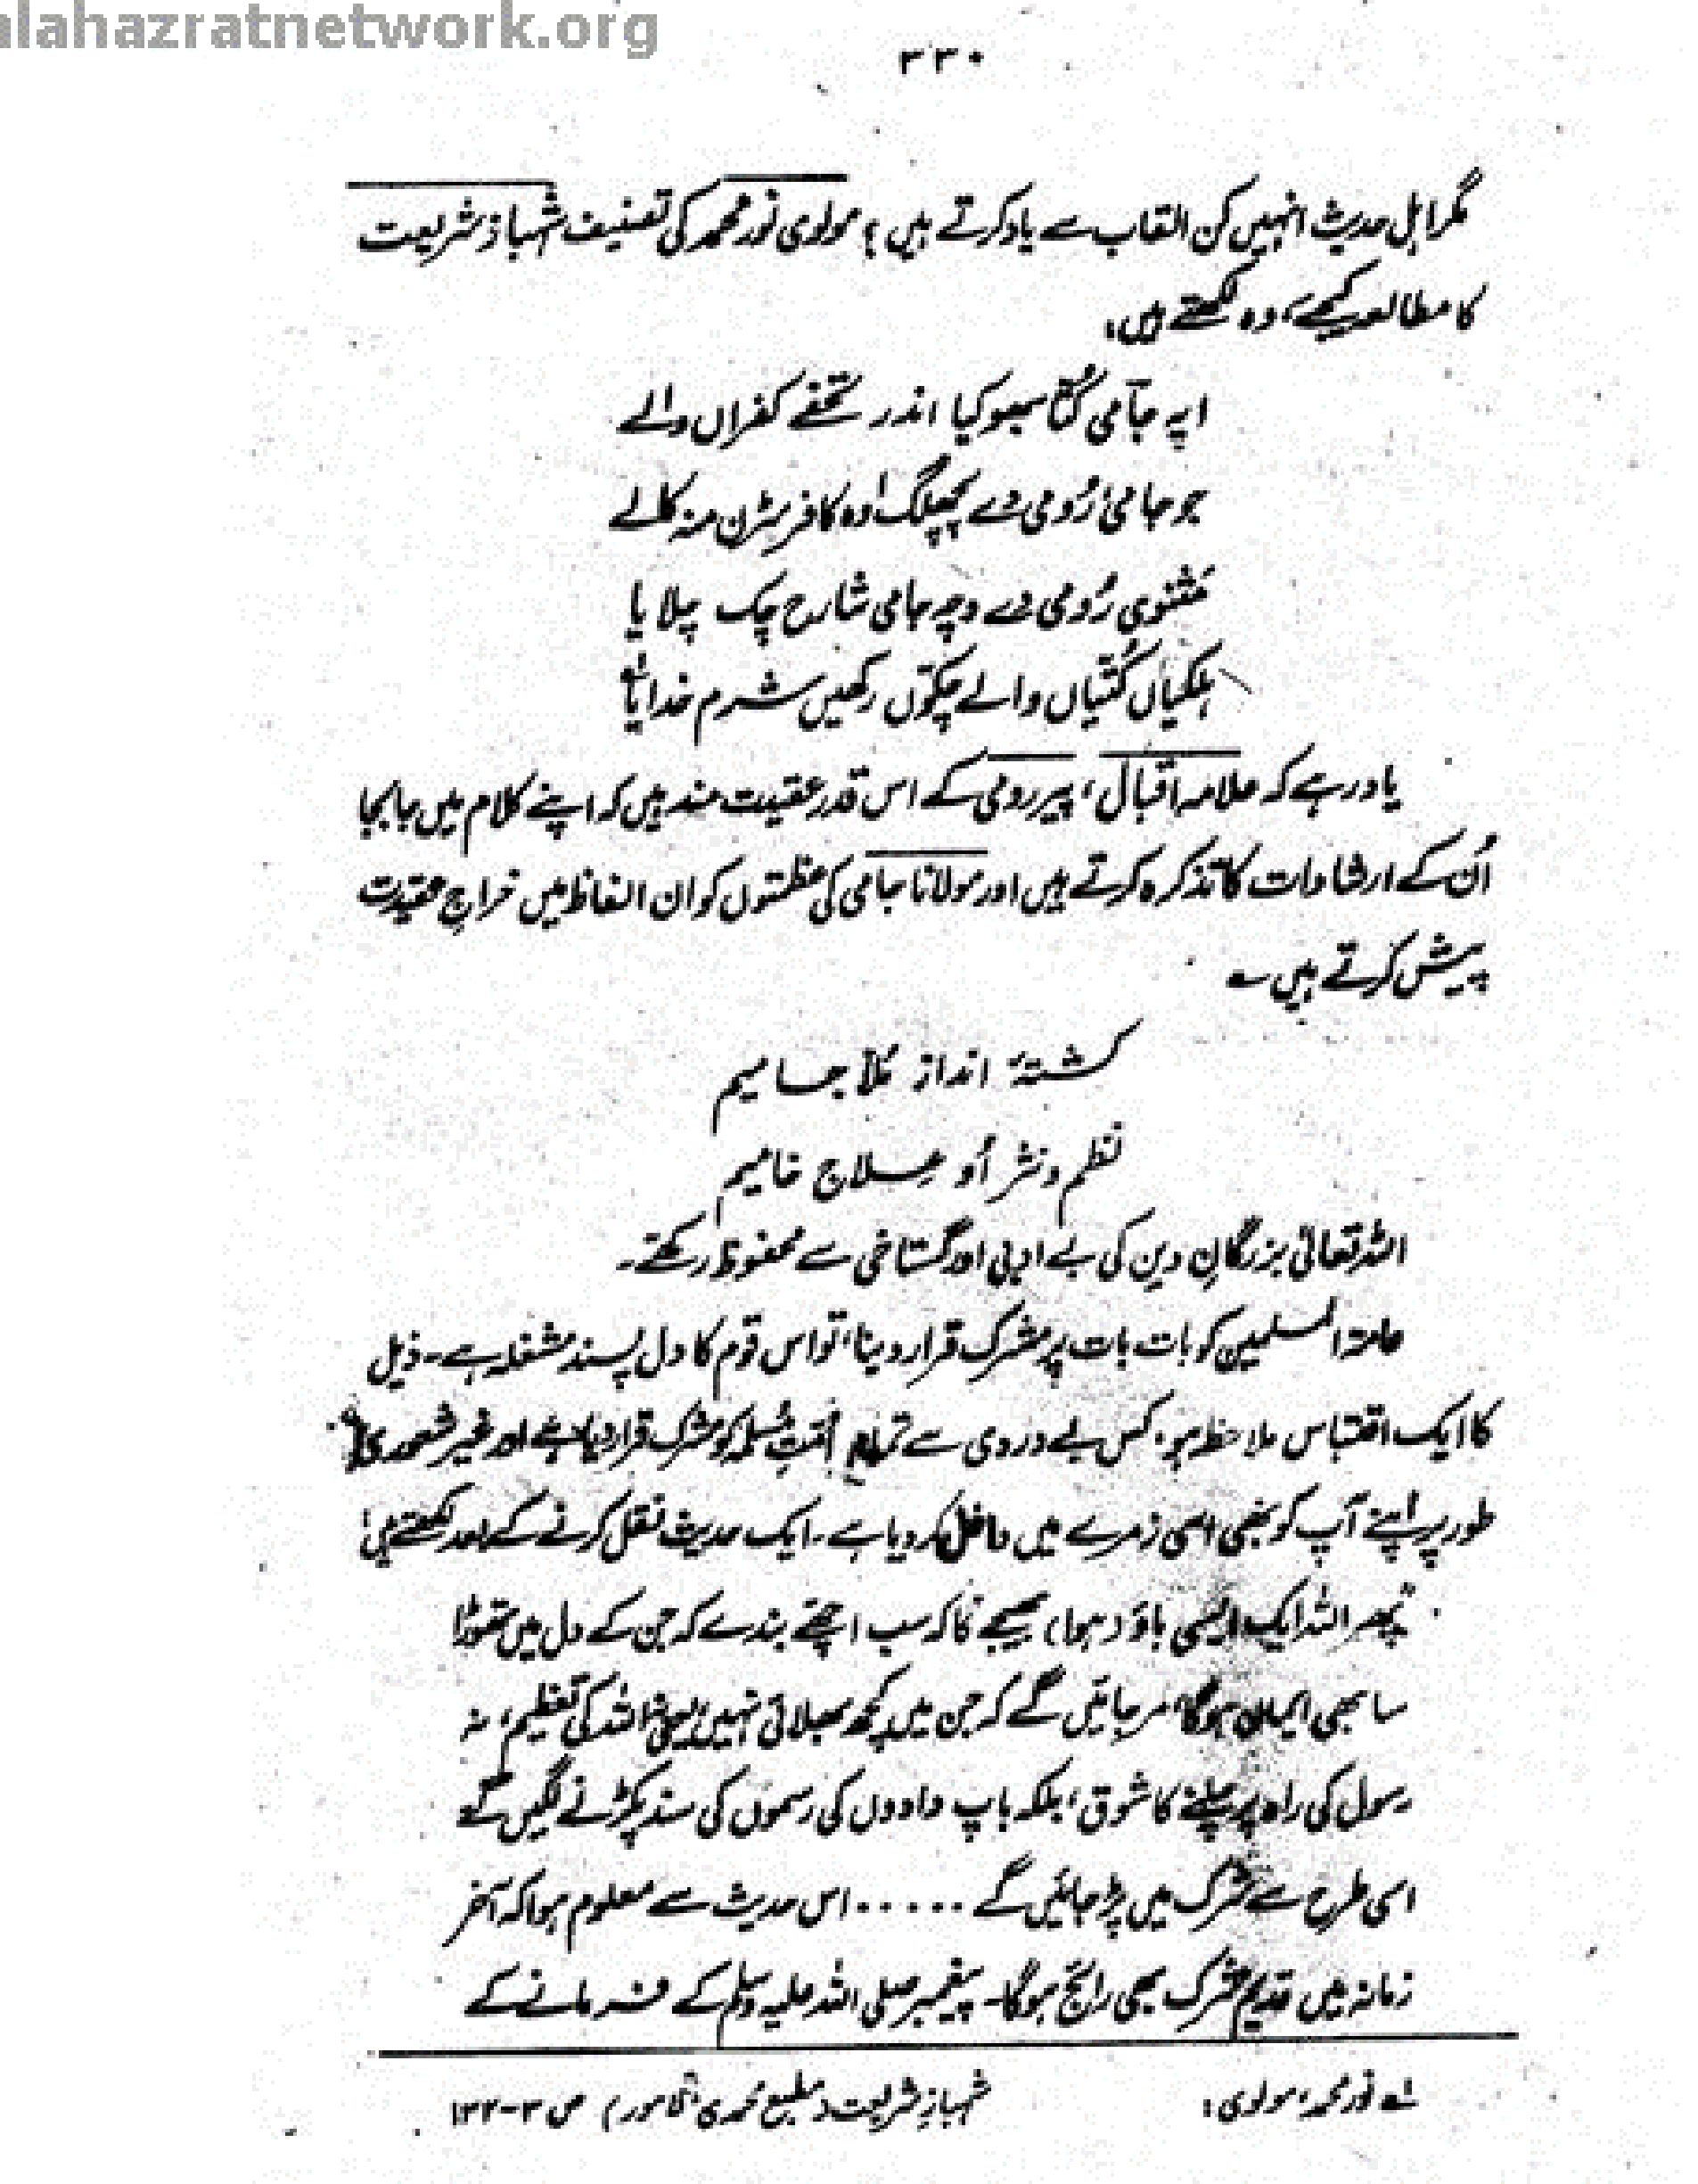 alahazratnetwork.org
۳۳۰
مگر اہل حدیث انہیں کن القاب سے یاد کرتے ہیں؟ مولوی نور محمد کی تصنیف شہباز شریعت
کا مطالعہ کیجیے، وہ لکھتے ہیں،
ایہ جامی کتا بھوکیا اندر تحفے کفراں والے
جو جامی رُومی دے پچھلگ اوہ کافر سڑن منہ کالے
مثنوی رُومی دے وچہ جامی شارح چک چلایا
ہلکیاں کُتیاں والے چکوں رکھیں شرم خدایا
یاد رہے کہ علامہ اقبال، پیر رومی کے اس قدر عقیدت مند ہیں کہ اپنے کلام میں جابجا
اُن کے ارشادات کا تذکرہ کرتے ہیں اور مولانا جامی کی عظمتوں کو ان الفاظ میں خراجِ عقیدت
پیش کرتے ہیں ؎
کشتۂ انداز مُلا جامیم
نظم و نثر اُو علاج خامیم
اللہ تعالیٰ بزرگانِ دین کی بے ادبی اور گستاخی سے محفوظ رکھے۔
عامۃ المسلمین کو بات بات پر مشرک قرار دینا، تو اس قوم کا دل پسند مشغلہ ہے۔ ذیل
کا ایک اقتباس ملاحظہ ہو، کس بے دردی سے تمام اُمتِ مسلمہ کو مشرک قرار دیا ہے اور غیر شعوری
طور پر اپنے آپ کو بھی اسی زمرے میں داخل کر دیا ہے۔ ایک حدیث نقل کرنے کے بعد لکھتے ہیں:
"پھر اللہ ایک ایسی باؤ (ہوا) بھیجے گا کہ سب اچھے بندے کہ جن کے دل میں تھوڑا
سا بھی ایمان ہوگا، مر جائیں گے کہ جن میں کچھ بھلائی نہیں یعنی نہ اللہ کی تعظیم، نہ
رسول کی راہ پر چلنے کا شوق، بلکہ باپ دادوں کی رسموں کی سند پکڑنے لگیں گے
اسی طرح سے شرک میں پڑ جائیں گے ..... اس حدیث سے معلوم ہوا کہ آخر
زمانہ میں قدیم شرک بھی رائج ہوگا۔ پیغمبر صلی اللہ علیہ وسلم کے فرمانے کے
لے نور محمد، مولوی: شہباز شریعت (مطبع محمدی لاہور) ص ۳-۱۳۲